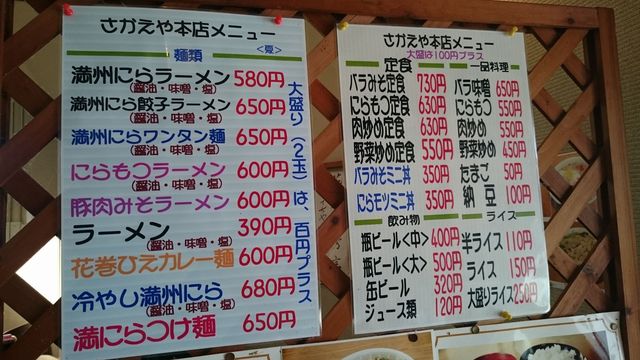 さかえや本店メニュー
麺類 <夏>
満州にらラーメン 580円
(醤油・味噌・塩)
満州にら餃子ラーメン 650円
(醤油・味噌・塩)
満州にらワンタン麺 650円
(醤油・味噌・塩)
にらもつラーメン 600円
(醤油・味噌・塩)
豚肉みそラーメン 600円
ラーメン 390円
(醤油・味噌・塩)
花巻ひえカレー麺 600円
冷やし満州にら 680円
(醤油・味噌・塩)
満にらつけ麺 650円
大盛り(2玉)は、百円プラス
さかえや本店メニュー
大盛は100円プラス
定食
バラみそ定食 730円
にらもつ定食 630円
肉炒め定食 630円
野菜炒め定食 550円
バラみそミニ丼 350円
にらモツミニ丼 350円
飲み物
瓶ビール<中> 400円
瓶ビール<大> 500円
缶ビール 320円
ジュース類 120円
一品料理
バラ味噌 650円
にらもつ 550円
肉炒め 550円
野菜炒め 450円
たまご 50円
納豆 100円
ライス
半ライス 110円
ライス 150円
大盛りライス 250円